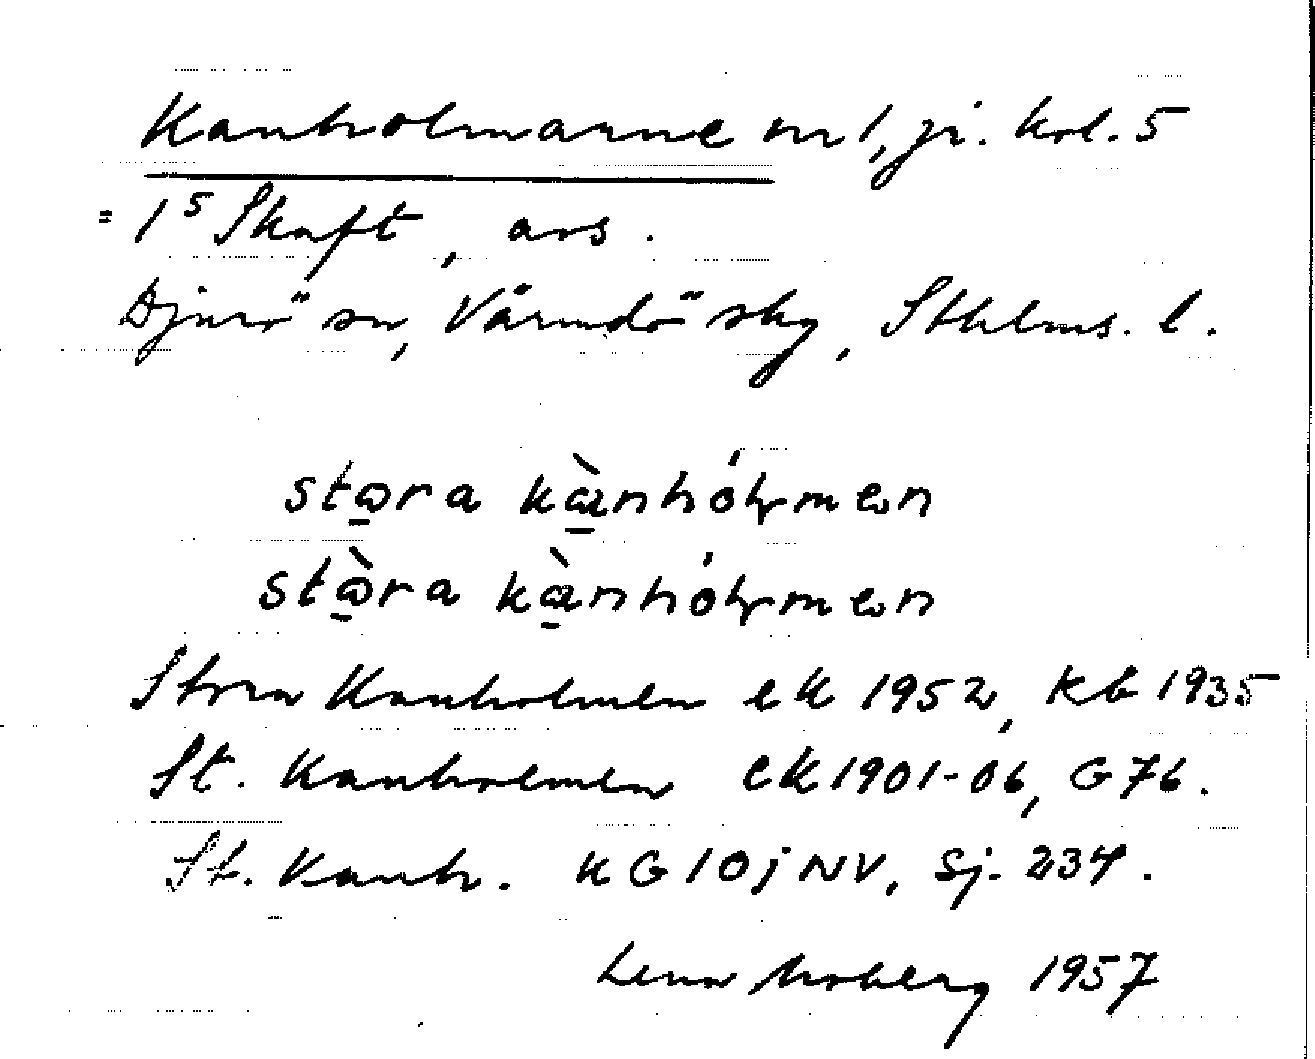 Kanholmarne nr 1, jr. kol. 5
= 1⁵ Skaft, avs.
Djurö sn, Värmdö skg, Sthlms. l.
stɷra kànhólmen
stɷ̀ra kànhólmen
Stora Kanholmen ek 1952, Kb 1935
St. Kanholmen ek 1901-06, G 76.
St. Kanh. KG 10j NV, Sj. 234.
Lena Moberg 1957